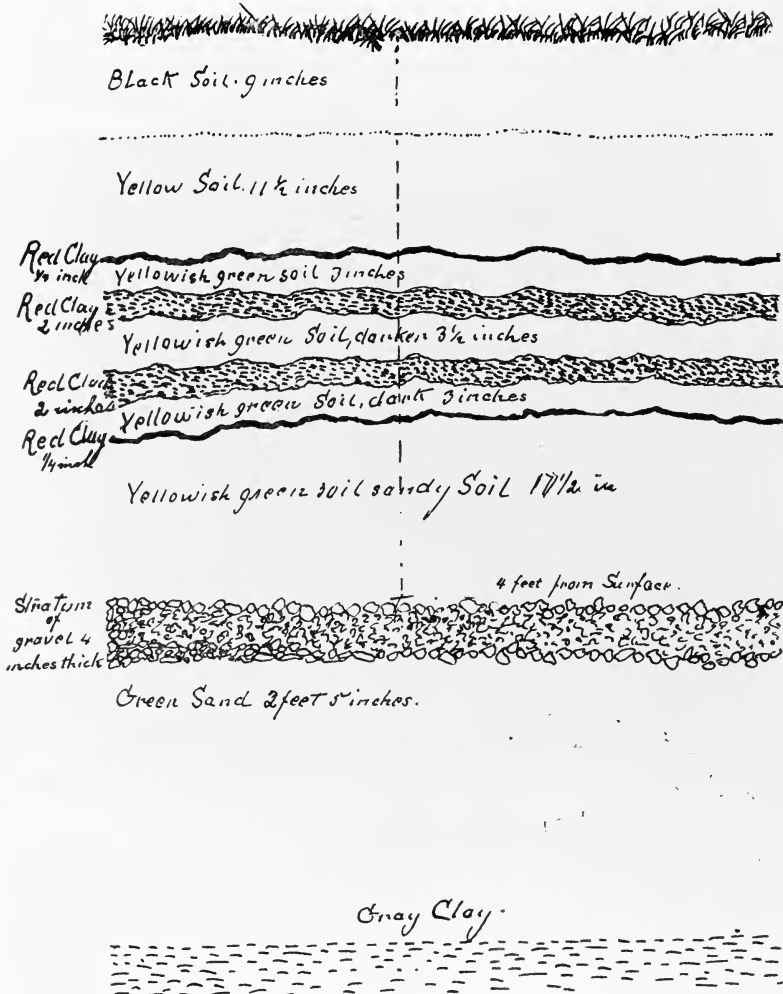 Black Soil. 9 inches
Yellow Soil. 11 ½ inches
Red Clay
inch
Yellowish green soil 3 inches
Red Clay
2 inches
Yellowish green Soil, darker 3 ½ inches
Red Clay
2 inches
Yellowish green Soil, dark 3 inches
Red Clay
¼ inch
Yellowish green soil sandy Soil in
4 feet from Surface.
Stratum
of
gravel 4
inches thick
Green Sand 2 feet 5 inches.
Gray Clay.